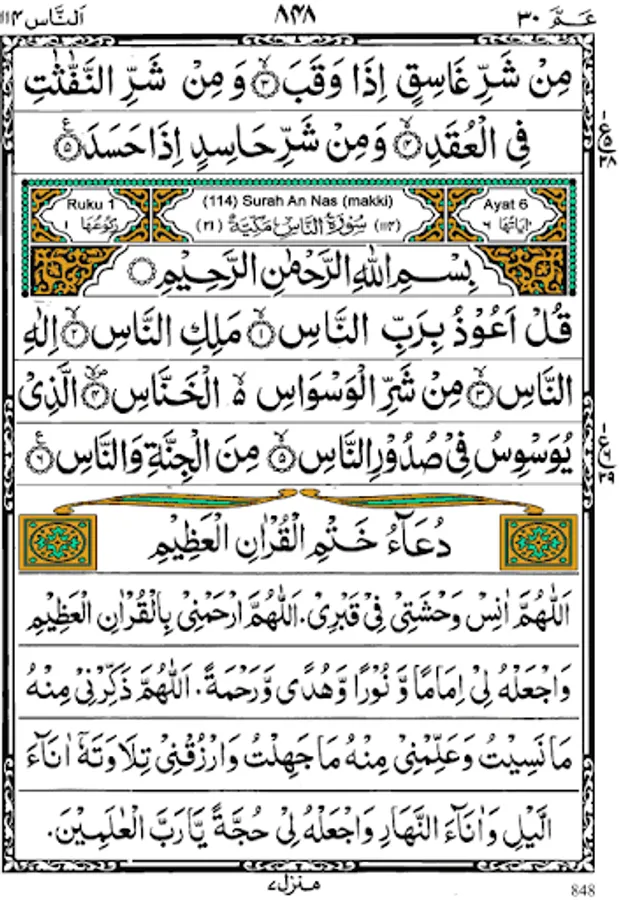 النَّاس ١١٤ ٨٤٨ عَمَّ ٣٠
مِنْ شَرِّ غَاسِقٍ اِذَا وَقَبَ ﴿٣﴾ وَ مِنْ شَرِّ النَّفّٰثٰتِ
فِی الْعُقَدِ ﴿٤﴾ وَ مِنْ شَرِّ حَاسِدٍ اِذَا حَسَدَ ﴿٥﴾
Ruku 1 (114) Surah An Nas (makki) Ayat 6
اٰیَاتُهَا ٦ (١١٤) سُوْرَةُ النَّاسِ مَكِّیَّةٌ (٢١) رُكُوْعُهَا ١
بِسْمِ اللّٰهِ الرَّحْمٰنِ الرَّحِیْمِ
قُلْ اَعُوْذُ بِرَبِّ النَّاسِ ﴿١﴾ مَلِكِ النَّاسِ ﴿٢﴾ اِلٰهِ
النَّاسِ ﴿٣﴾ مِنْ شَرِّ الْوَسْوَاسِ ۵ الْخَنَّاسِ ﴿٤﴾ الَّذِیْ
یُوَسْوِسُ فِیْ صُدُوْرِ النَّاسِ ﴿٥﴾ مِنَ الْجِنَّةِ وَ النَّاسِ ﴿٦﴾
دُعَآءُ خَتْمِ الْقُرْاٰنِ الْعَظِیْمِ
اَللّٰهُمَّ اٰنِسْ وَحْشَتِیْ فِیْ قَبْرِیْ. اَللّٰهُمَّ ارْحَمْنِیْ بِالْقُرْاٰنِ الْعَظِیْمِ
وَاجْعَلْهُ لِیْ اِمَامًا وَّ نُوْرًا وَّ هُدًی وَّرَحْمَةً. اَللّٰهُمَّ ذَكِّرْنِیْ مِنْهُ
مَا نَسِیْتُ وَعَلِّمْنِیْ مِنْهُ مَا جَهِلْتُ وَارْزُقْنِیْ تِلَاوَتَهٗ اٰنَآءَ
الَّیْلِ وَ اٰنَآءَ النَّهَارِ وَاجْعَلْهُ لِیْ حُجَّةً یَّا رَبَّ الْعٰلَمِیْنَ.
منزل ٧
848